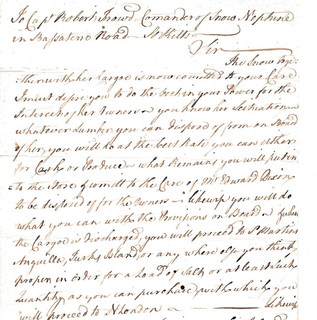 To Capt Robert Trowd Comander of Snow Neptune
in Bassaterre Road St Kitts
Sir
The Snow Toge-
ther with her Cargoe is now committed to your Care
I must desire you to do the best in your Power for the
Interest of her Owners as you know her Scituation
whatever Lumber you can dispose of from on Board
of her, you will do at the best Rate you can either
for Cash or Produce what Remains you will put in
to the Store & comitt to the Care of Mr Edward
to be disposed of for the Owners likewise you will do
what you can with the Provisions on Board when
the Cargoe is Discharged, you will proceed to St Martins
Anguilla, Turks Island, or any where else you think
proper in order for a Load of Salt or at least such
Quantity as you can purchase, with which you
will proceed to N London Likewise